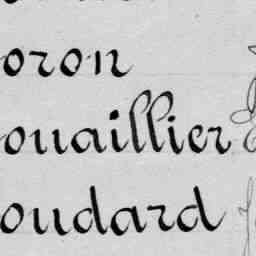 oron
ouaillier
oudard